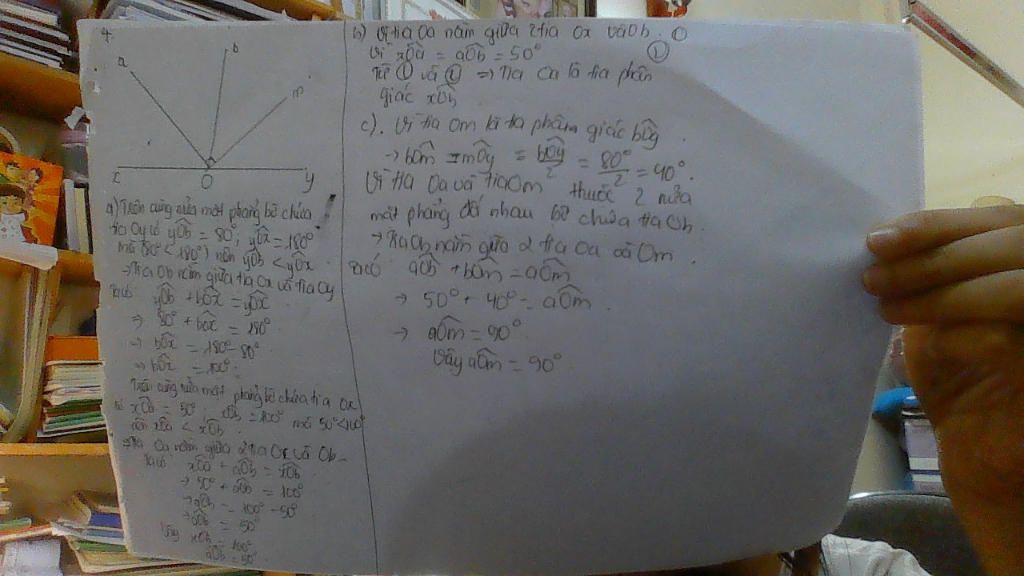 4.
a
b
m
x
O
y
a) Trên cùng nửa mặt phẳng bờ chứa
tia Oy có yOb = 80°, yOx = 180°
mà 80° < 180° nên yOb < yOx
→ Tia Ob nằm giữa tia Ox và tia Oy
Ta có yOb + bOx = yOx
→ 80° + bOx = 180°
→ bOx = 180° - 80°
→ bOx = 100°
Trên cùng nửa mặt phẳng bờ chứa tia Ox
có xOa = 50°, xOb = 100° mà 50° < 100°
nên xOa < xOb
→ Tia Oa nằm giữa 2 tia Ox và Ob
Ta có xOa + aOb = xOb
→ 50° + aOb = 100°
→ aOb = 100° - 50°
→ aOb = 50°
Vậy xOb = 100°
aOb = 50°
b) Vì tia Oa nằm giữa 2 tia Ox và Ob ①
Vì xOa = aOb = 50° ②
Từ ① và ② => Tia Oa là tia phân
giác xOb
c). Vì tia Om là tia phâm giác bOy.
→ bOm = mOy = bOy/2 = 80°/2 = 40°.
Vì tia Oa và tia Om thuộc 2 nửa
mặt phẳng đối nhau bờ chứa tia Ob.
→ Tia Ob nằm giữa 2 tia Oa và Om.
Ta có aOb + bOm = aOm
→ 50° + 40° = aOm.
→ aOm = 90°
Vậy aOm = 90°